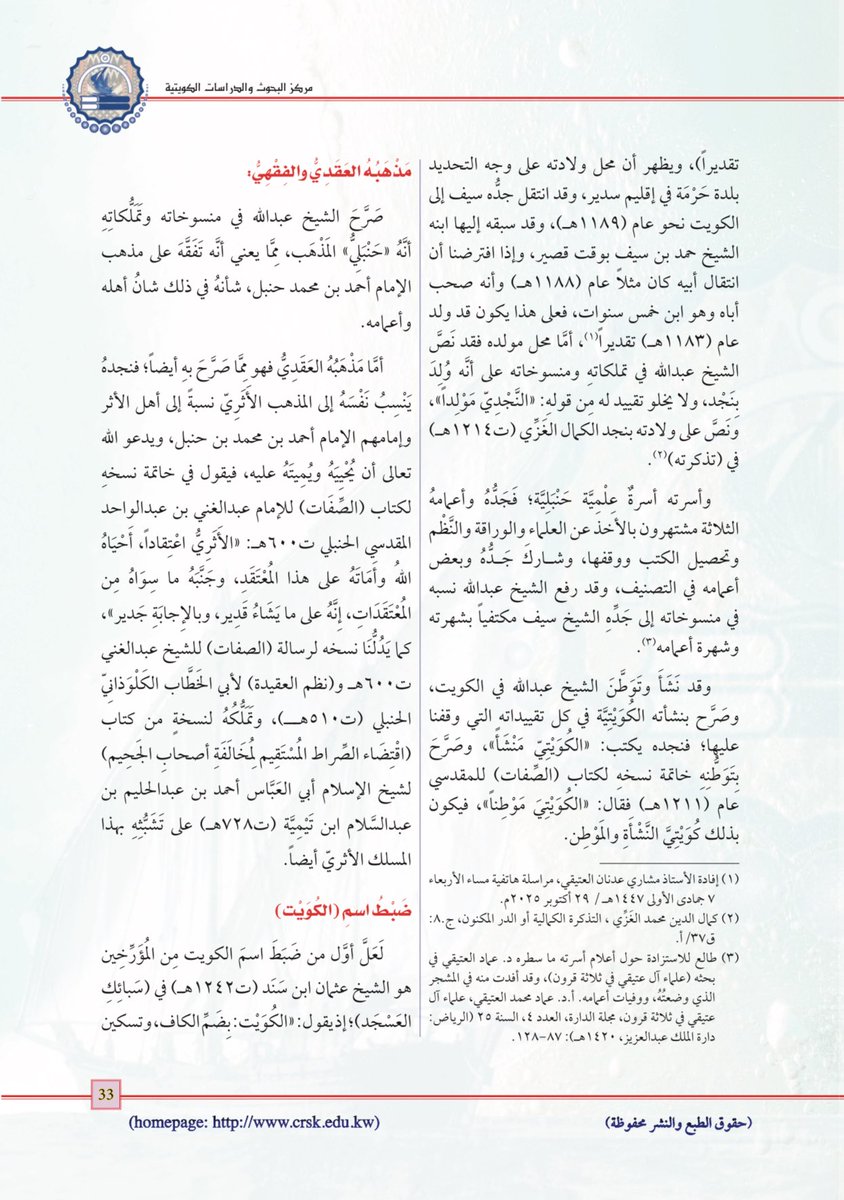 مركز البحوث والدراسات الكويتية
تقديراً)، ويظهر أن محل ولادته على وجه التحديد
بلدة حَرْمَة في إقليم سدير، وقد انتقل جدُّه سيف إلى
الكويت نحو عام (١١٨٩هـ)، وقد سبقه إليها ابنه
الشيخ حمد بن سيف بوقت قصير، وإذا افترضنا أن
انتقال أبيه كان مثلاً عام (١١٨٨هـ) وأنه صحب
أباه وهو ابن خمس سنوات، فعلى هذا يكون قد ولد
عام (١١٨٣هـ) تقديراً(١)، أمَّا محل مولده فقد نَصَّ
الشيخ عبدالله في تملكاتهِ ومنسوخاته على أنَّه وُلِدَ
بِنَجْد، ولا يخلو تقييد له مِن قولهِ: «النَّجْدِيّ مَوْلِداً»،
ونَصَّ على ولادته بنجد الكمال الغَزِّي (ت١٢١٤هـ)
في (تذكرته)(٢).
وأسرته أسرةٌ عِلْمِيَّة حَنْبَلِيَّة؛ فَجَدُّهُ وأعمامهُ
الثلاثة مشتهرون بالأخذ عن العلماء والوراقة والنَّظْم
وتحصيل الكتب ووقفها، وشاركَ جَدُّهُ وبعض
أعمامه في التصنيف، وقد رفع الشيخ عبدالله نسبه
في منسوخاته إلى جَدِّهِ الشيخ سيف مكتفياً بشهرته
وشهرة أعمامه(٣).
وقد نَشَأَ وتَوَطَّنَ الشيخ عبدالله في الكويت،
وصَرَّح بنشأته الكُوَيْتِيَّة في كل تقييداته التي وقفنا
عليها؛ فنجده يكتب: «الكُوَيْتِيّ مَنْشَأً»، وصَرَّحَ
بِتَوَطُّنِهِ خاتمة نسخهِ لكتاب (الصِّفات) للمقدسي
عام (١٢١١هـ) فقال: «الكُوَيْتِيَ مَوْطِناً»، فيكون
بذلك كُوَيْتِيَّ النَّشْأَةِ والمَوْطِن.
(١) إفادة الأستاذ مشاري عدنان العتيقي، مراسلة هاتفية مساء الأربعاء
٧ جمادى الأولى ١٤٤٧هـ / ٢٩ أكتوبر ٢٠٢٥م.
(٢) كمال الدين محمد الغَزِّي ، التذكرة الكمالية أو الدر المكنون، ج.٨:
ق٣٧/ أ.
(٣) طالع للاستزادة حول أعلام أسرته ما سطره د. عماد العتيقي في
بحثه (علماء آل عتيقي في ثلاثة قرون)، وقد أفدت منه في المشجر
الذي وضعتُهُ، ووفيات أعمامه. أ.د. عماد محمد العتيقي، علماء آل
عتيقي في ثلاثة قرون، مجلة الدارة، العدد ٤، السنة ٢٥ (الرياض:
دارة الملك عبدالعزيز، ١٤٢٠هـ): ٨٧-١٢٨.
مَذْهَبُهُ العَقَدِيُّ والفِقْهِيُّ:
صَرَّحَ الشيخ عبدالله في منسوخاته وتَمَلُّكاتِهِ
أنَّهُ «حَنْبَلِيُّ» المَذْهَب، مِمَّا يعني أنَّه تَفَقَّهَ على مذهب
الإمام أحمد بن محمد حنبل، شأنهُ في ذلك شانُ أهله
وأعمامه.
أمَّا مَذْهَبُهُ العَقَدِيُّ فهو مِمَّا صَرَّحَ بهِ أيضاً؛ فنجدهُ
يَنْسِبُ نَفْسَهُ إلى المذهب الأَثَرِيّ نسبةً إلى أهل الأثر
وإمامهم الإمام أحمد بن محمد بن حنبل، ويدعو الله
تعالى أن يُحْيِيَهُ ويُمِيتَهُ عليه، فيقول في خاتمة نسخهِ
لكتاب (الصِّفَات) للإمام عبدالغني بن عبدالواحد
المقدسي الحنبلي ت٦٠٠هـ: «الأَثَرِيُّ اعْتِقاداً، أَحْيَاهُ
اللهُ وأَمَاتَهُ على هذا المُعْتَقَدِ، وجَنَّبَهُ ما سِوَاهُ مِن
المُعْتَقَدَاتِ، إنَّهُ على ما يَشَاءُ قَدِير، وبالإجابَةِ جَدير»،
كما يَدُلُّنَا نسخه لرسالة (الصفات) للشيخ عبدالغني
ت٦٠٠هـ و(نظم العقيدة) لأبي الخَطَّاب الكَلْوَذانِيّ
الحنبلي (ت٥١٠هــ)، وتَمَلُّكُهُ لنسخةٍ من كتاب
(اقْتِضَاء الصِّراط المُسْتَقِيم لِمُخَالَفَةِ أصحابِ الجَحِيم)
لشيخ الإسلام أبي العَبَّاس أحمد بن عبدالحليم بن
عبدالسَّلام ابن تَيْمِيَّة (ت٧٢٨هـ) على تَشَبُّثِهِ بهذا
المسلك الأثريّ أيضاً.
ضَبْطُ اسمِ (الكُوَيْت)
لَعَلَّ أوَّل من ضَبَطَ اسمَ الكويت مِن المُؤَرِّخين
هو الشيخ عثمان ابن سَنَد (ت١٢٤٢هـ) في (سَبائِكِ
العَسْجَد)؛ إذ يقول: «الكُوَيْت: بِضَمِّ الكاف، وتسكين
33
(حقوق الطبع والنشر محفوظة)
(homepage: http://www.crsk.edu.kw)